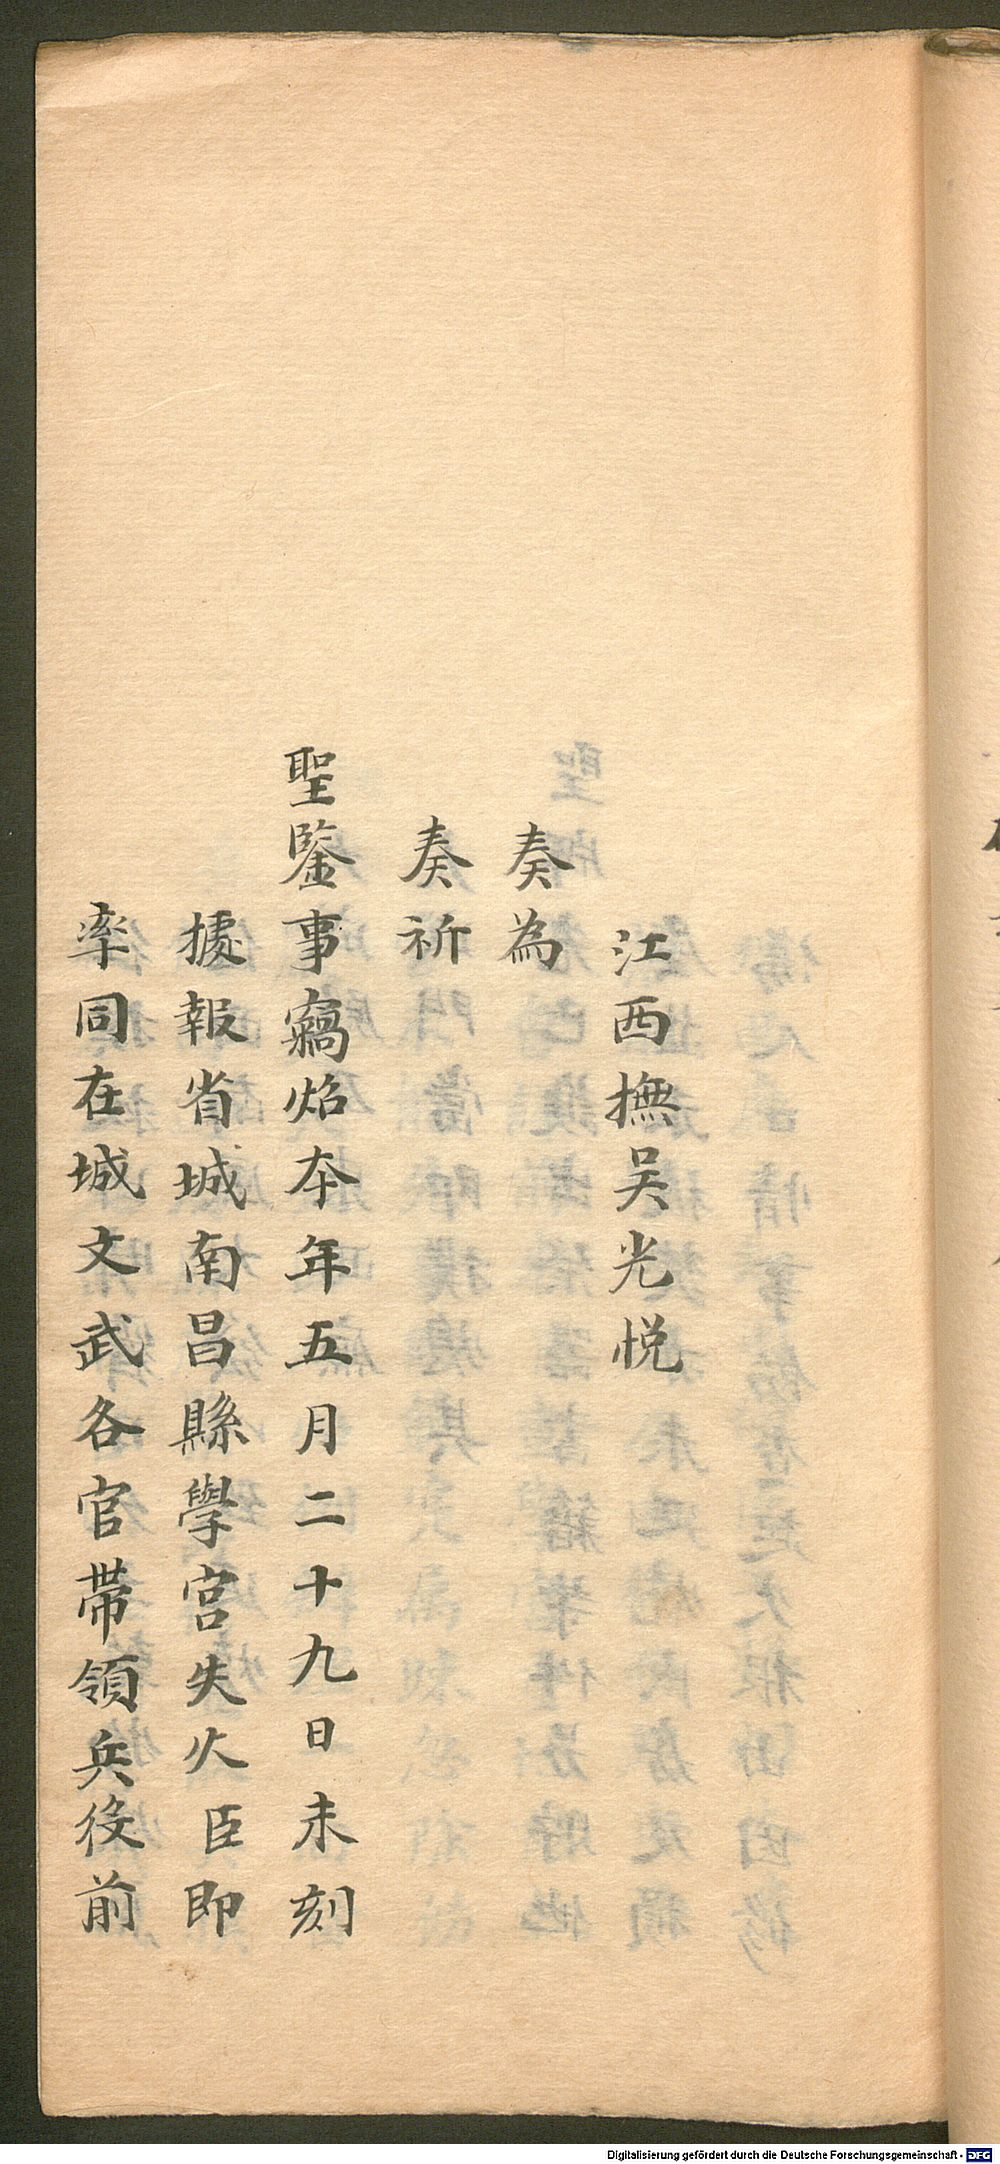 江西撫吳光悅
奏為
奏祈
聖鑒事竊照本年五月二十九日未刻
據報省城南昌縣學宮失火臣即
率同在城文武各官帶領兵役前
Digitalisierung gefördert durch die Deutsche Forschungsgemeinschaft - DFG